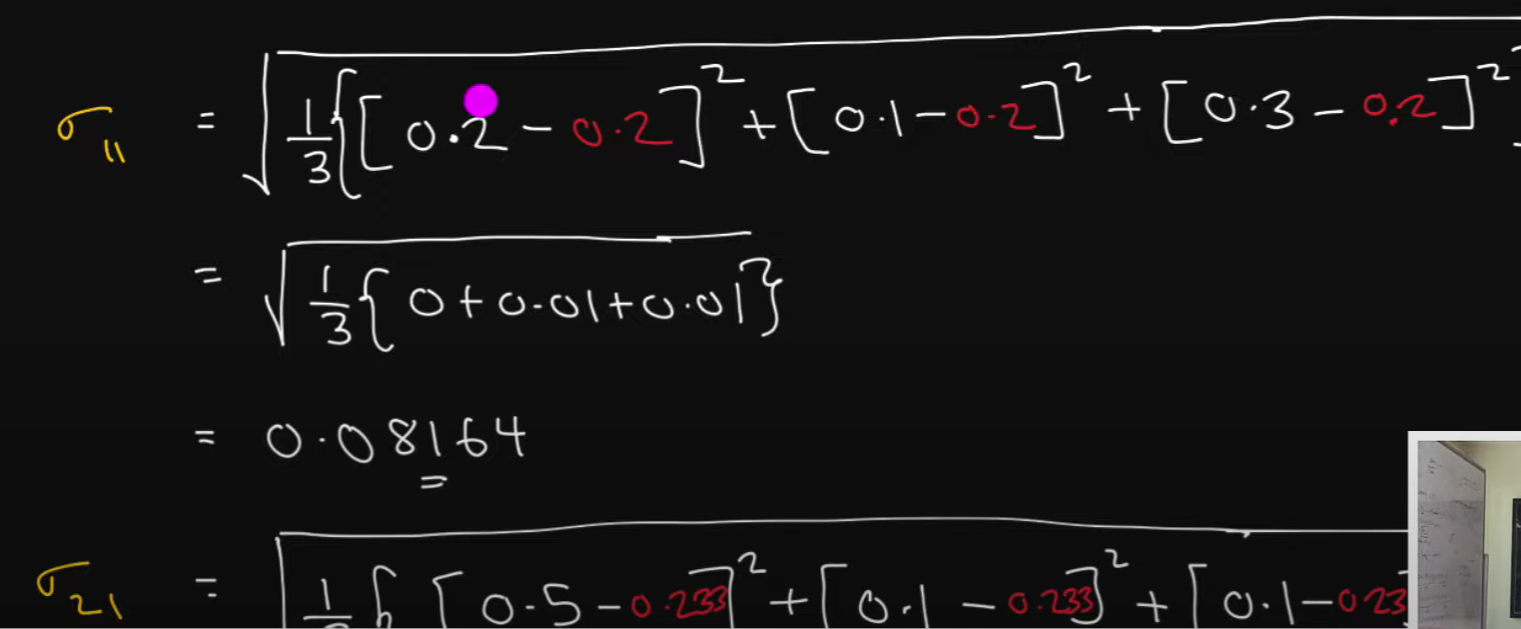 σ₁₁ = √(1/3{[0.2 - 0.2]² + [0.1 - 0.2]² + [0.3 - 0.2]²
= √(1/3{0 + 0.01 + 0.01})
= 0.08164
σ₂₁ = √(1/3{[0.5 - 0.233]² + [0.1 - 0.233]² + [0.1 - 0.23